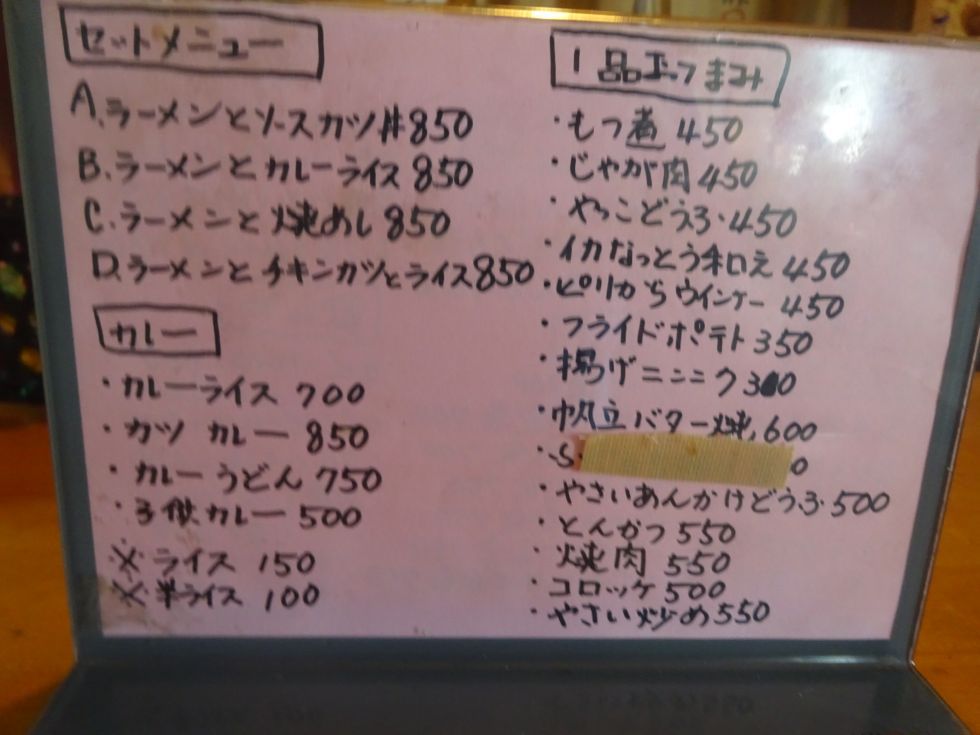 セットメニュー
A.ラーメンとソースカツ丼850
B.ラーメンとカレーライス850
C.ラーメンと焼めし850
D.ラーメンとチキンカツとライス850
カレー
・カレーライス 700
・カツカレー 850
・カレーうどん 750
・子供カレー 500
※ライス 150
※半ライス 100
1品エつまみ
・もつ煮 450
・じゃが肉 450
・やっこどうふ・450
・イカなっとう和え 450
・ピリからウインナー 450
・フライドポテト 350
・揚げニンニク 300
・帆立バター焼 600
・やさいあんかけどうふ・500
・とんかつ 550
・焼肉 550
・コロッケ 500
・やさい炒め 550